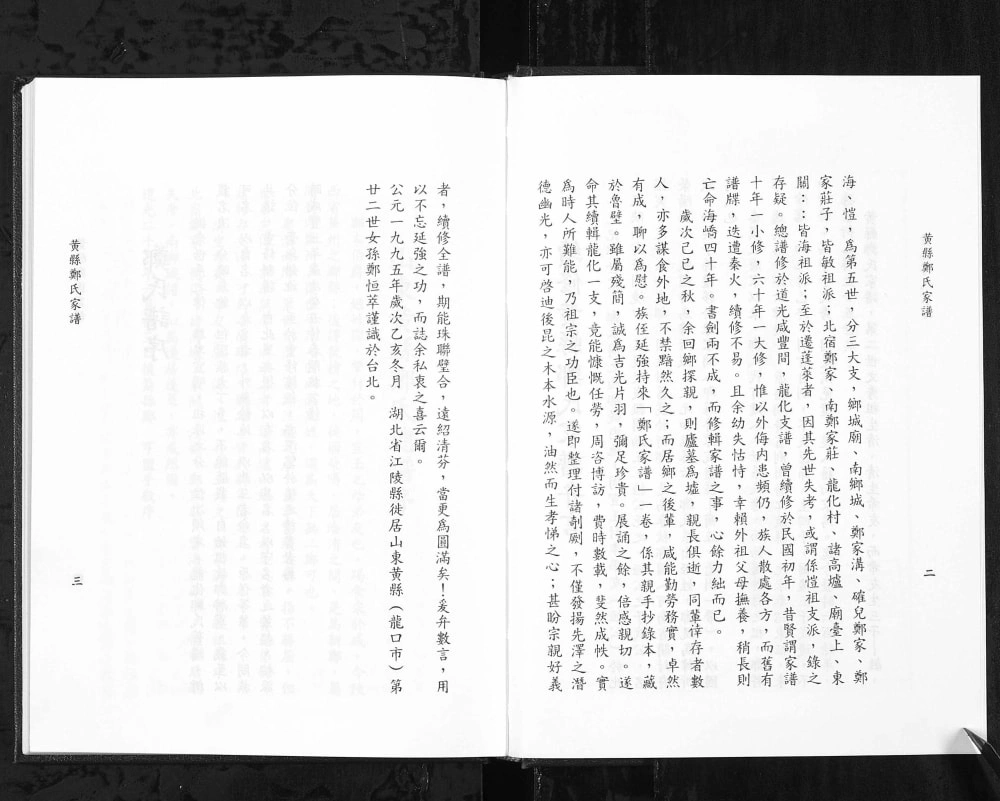 黃縣鄭氏家譜
二
海、愷,為第五世,分三大支,鄉城廟、南鄉城、鄭家溝、確兒鄭家、鄭
家莊子,皆敏祖派;北宿鄭家、南鄭家莊、龍化村、諸高爐、廟臺上、東
關::皆海祖派;至於遷蓬萊者,因其先世失考,或謂係愷祖支派,錄之
存疑。總譜修於道光咸豐間,龍化支譜,曾續修於民國初年,昔賢謂家譜
十年一小修,六十年一大修,惟以外侮內患頻仍,族人散處各方,而舊有
譜牒,迭遭秦火,續修不易。且余幼失怙恃,幸賴外祖父母撫養,稍長則
亡命海嶠四十年。書劍兩不成,而修輯家譜之事,心餘力絀而已。
歲次己巳之秋,余回鄉探親,則廬墓為墟,親長俱逝,同輩倖存者數
人,亦多謀食外地,不禁黯然久之;而居鄉之後輩,咸能勤勞務實,卓然
有成,聊以為慰。族侄延強持來「鄭氏家譜」一卷,係其親手抄錄本,藏
於魯壁。雖屬殘簡,誠為吉光片羽,彌足珍貴。展誦之餘,倍感親切。遂
命其續輯龍化一支,竟能慷慨任勞,周咨博訪,費時數載,斐然成帙。實
為時人所難能,乃祖宗之功臣也。遂即整理付諸剞劂,不僅發揚先澤之潛
德幽光,亦可啓迪後昆之木本水源,油然而生孝悌之心;甚盼宗親好義
者,續修全譜,期能珠聯璧合,遠紹清芬,當更為圓滿矣!爰弁數言,用
以不忘延強之功,而誌余私衷之喜云爾。
公元一九九五年歲次乙亥冬月 湖北省江陵縣徙居山東黃縣(龍口市)第
廿二世女孫鄭恒萃謹識於台北。
黃縣鄭氏家譜
三